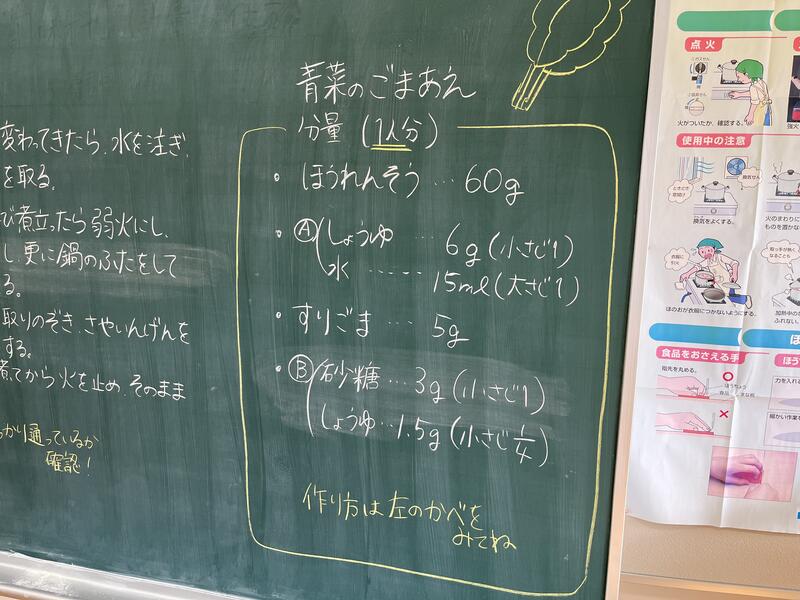 変わってきたら、水を注ぎ、
を取る。
び煮立ったら弱火にし、
し、更に鍋のふたをして
る。
取りのぞき、さやいんげんを
する。
煮てから火を止め、そのまま
っかり通っているか
確認!
青菜のごまあえ
分量(1人分)
・ほうれんそう…60g
・Ⓐ しょうゆ…6g(小さじ1)
水……15ml(大さじ1)
・すりごま…5g
・Ⓑ 砂糖…3g(小さじ1)
しょうゆ…1.5g(小さじ1/4)
作り方は左のかべを
みてね
点火
火がついたか、確認する。
強火
使用中の注意
ときどき
換気をよくする。
火のまわりに
ものを置かな
衣服に
引火
取っ手が熱く
なることも
ほのおが衣服につかないようにする。
加熱中の
ふれない。
食品をおさえる手
指先を丸める。
ほうちょう
食品
まな板
力を入れる
細かい作業を